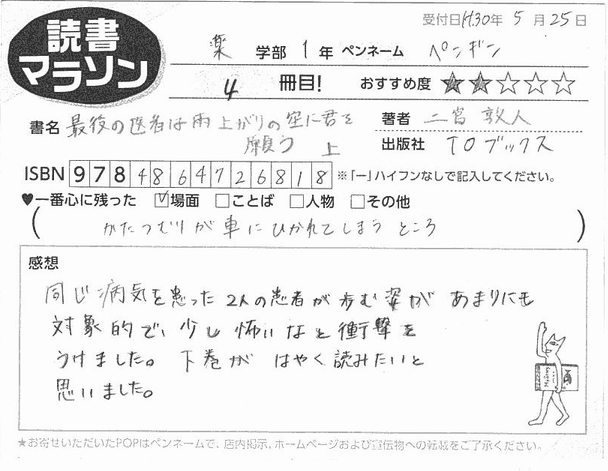 受付日 H30年 5月 25日
読書
マラソン
薬 学部 1年 ペンネーム ペンギン
4 冊目! おすすめ度 ★★☆☆☆
書名 最後の医者は雨上がりの空に君を
願う 上
著者 二宮 敦人
出版社 TOブックス
ISBN 978 4864726818 ※「ー」ハイフンなしで記入してください。
♥一番心に残った ☑場面 □ことば □人物 □その他
( かたつむりが車にひかれてしまうところ )
感想
同じ病気を患った2人の患者が歩む姿があまりにも
対象的で、少し怖いなと衝撃を
うけました。下巻がはやく読みたいと
思いました。
★お寄せいただいたPOPはペンネームで、店内掲示、ホームページおよび宣伝物への転載をご了承ください。